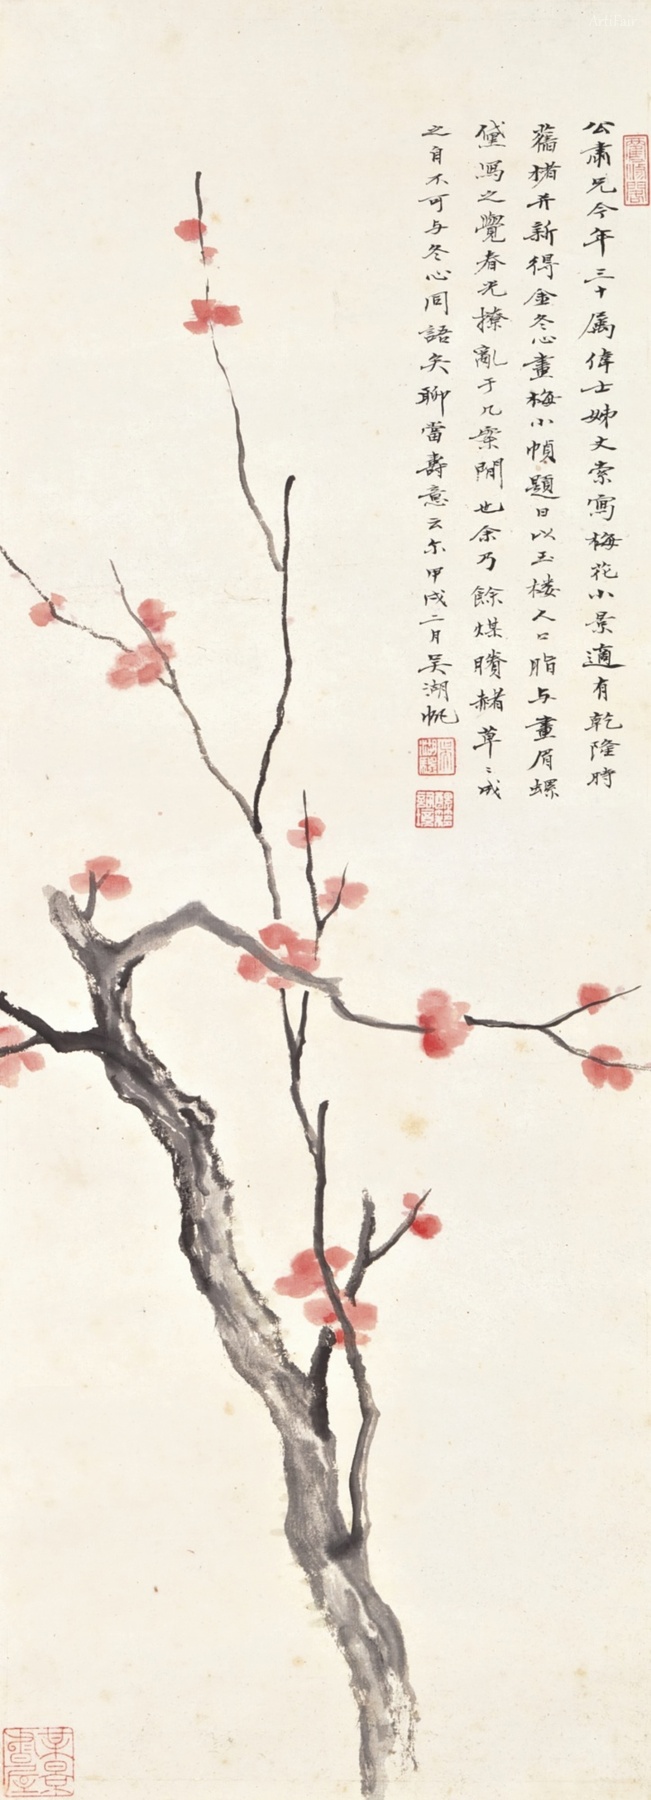 公肅兄今年三十属偉士姊丈索寫梅花小景適有乾隆時
舊楮并新得金冬心畫梅小幀題曰以玉楼人口脂与畫眉螺
黛寫之覺春光撩亂于几案閒也余乃餘煤賸赭草〻成
之自不可与冬心同語矣聊當壽意云尓甲戌二月吴湖帆
梅景書屋